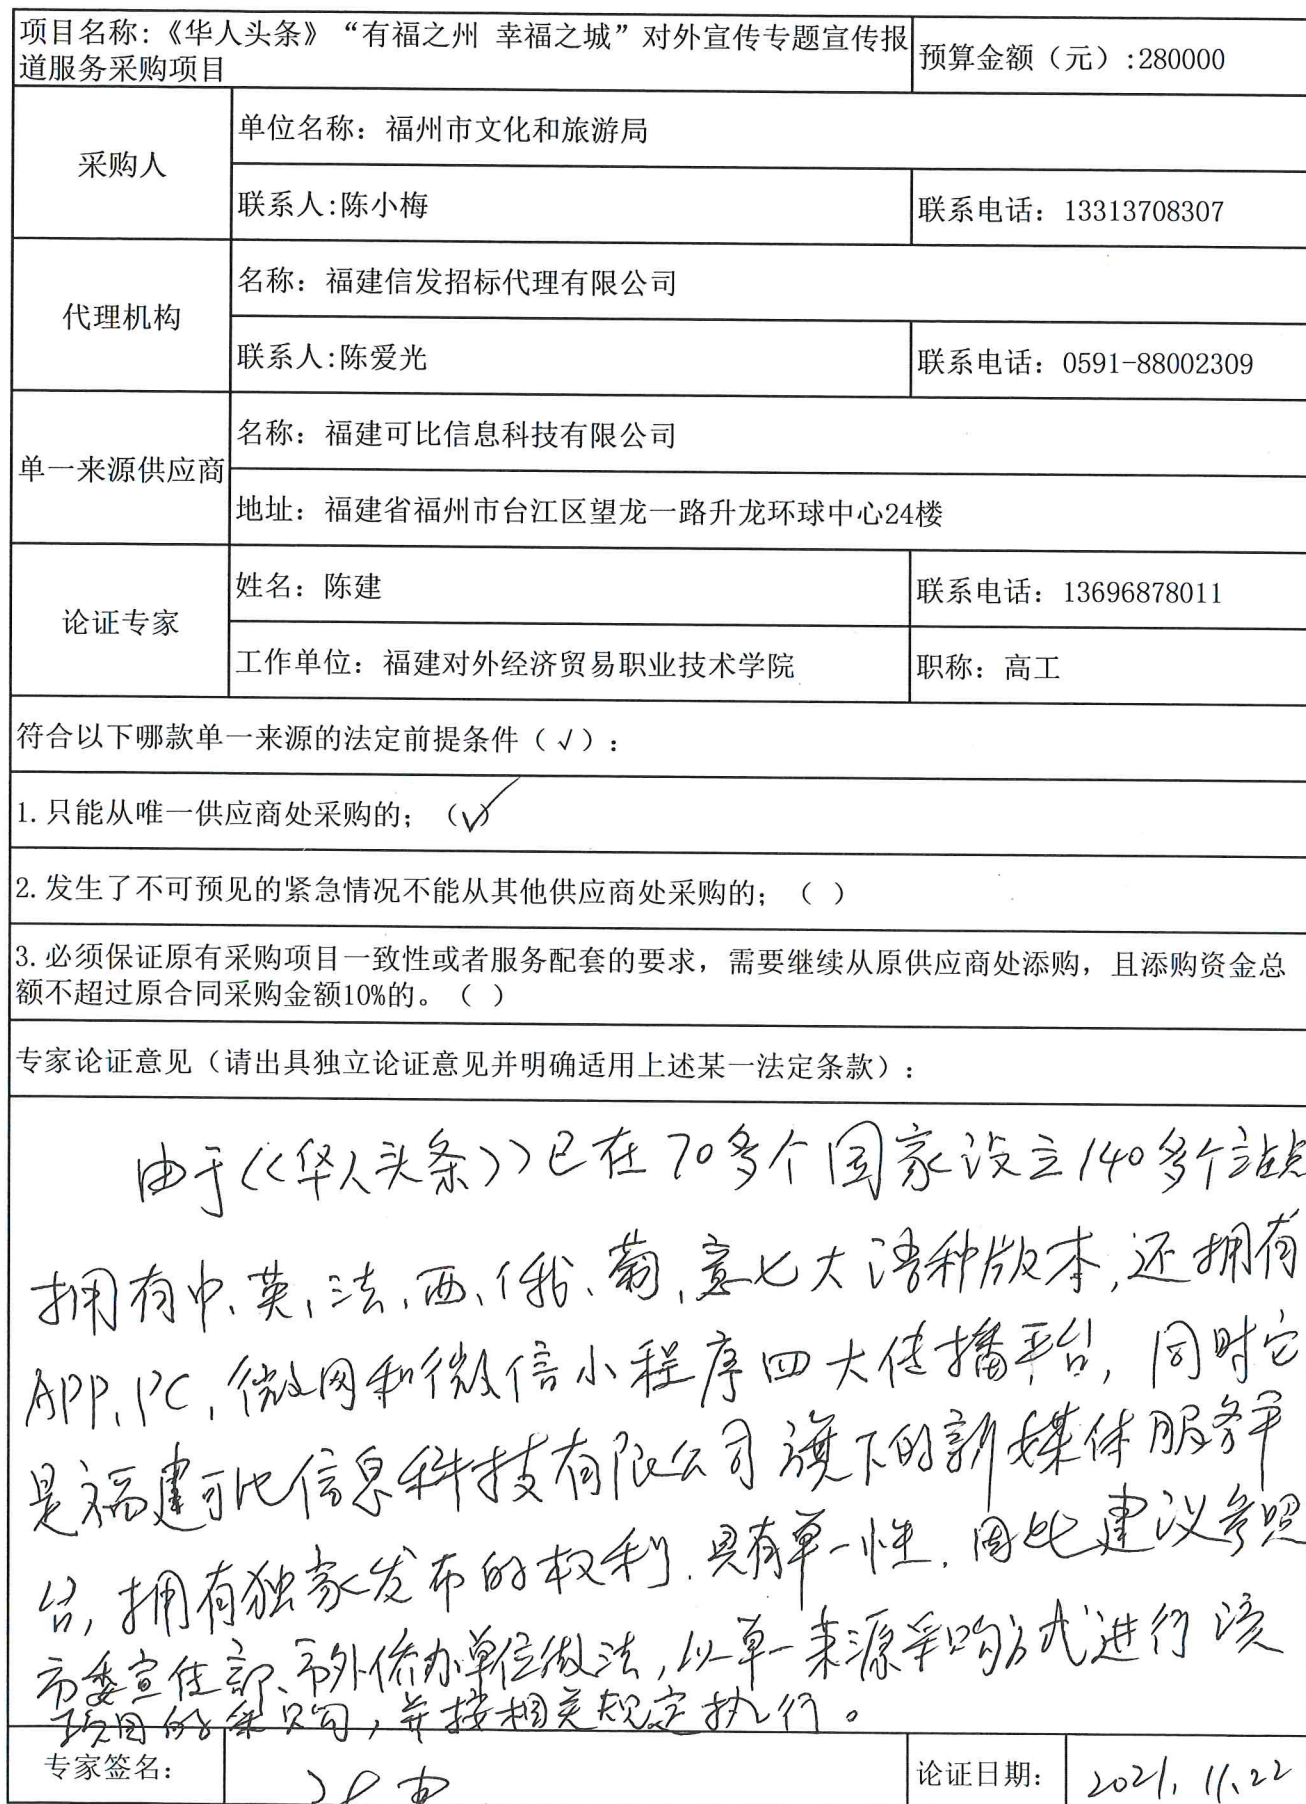 项目名称:《华人头条》“有福之州 幸福之城”对外宣传专题宣传报
道服务采购项目
预算金额（元）:280000
采购人
单位名称：福州市文化和旅游局
联系人:陈小梅
联系电话：13313708307
代理机构
名称：福建信发招标代理有限公司
联系人:陈爱光
联系电话：0591-88002309
单一来源供应商
名称：福建可比信息科技有限公司
地址：福建省福州市台江区望龙一路升龙环球中心24楼
论证专家
姓名：陈建
联系电话：13696878011
工作单位：福建对外经济贸易职业技术学院
职称：高工
符合以下哪款单一来源的法定前提条件（√）：
1.只能从唯一供应商处采购的；（√）
2.发生了不可预见的紧急情况不能从其他供应商处采购的；（ ）
3.必须保证原有采购项目一致性或者服务配套的要求，需要继续从原供应商处添购，且添购资金总
额不超过原合同采购金额10%的。（ ）
专家论证意见（请出具独立论证意见并明确适用上述某一法定条款）：
由于《华人头条》已在70多个国家设立140多个站点
拥有中、英、法、西、俄、葡、意七大语种版本,还拥有
APP、PC、微网和微信小程序四大传播平台，同时它
是福建可比信息科技有限公司旗下的新媒体服务平
台，拥有独家发布的权利.具有单一性.因此建议参照
市委宣传部、市外侨办单位做法，以单一来源采购方式进行该
项目的采购，并按相关规定执行。
专家签名：
论证日期：
2021.11.22